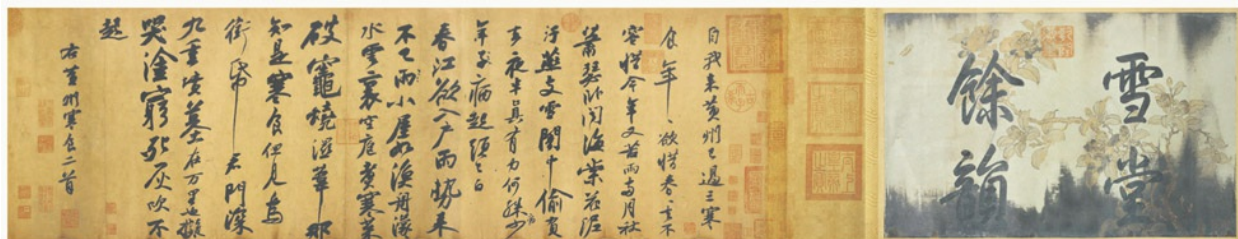 雪堂
餘韻
自我來黃州已過三寒
食年〻欲惜春〻去不
容惜今年又苦雨兩月秋
蕭瑟臥聞海棠花泥
汙燕支雪闇中偷負
去夜半真有力何殊病少
年子病起頭已白
春江欲入戶雨勢來
不已雨小屋如漁舟濛〻
水雲裏空庖煮寒菜
破竈燒濕葦那
知是寒食但見烏
銜帋君門深
九重墳墓在万里也擬
哭塗窮死灰吹不
起
右黃州寒食二首